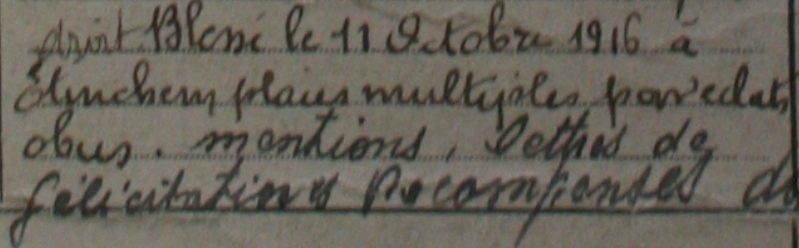 droit Blessé le 11 Octobre 1916 à
Etinehem plaies multiples par eclats
obus. mentions, Lettres de
félicitations Recompenses de